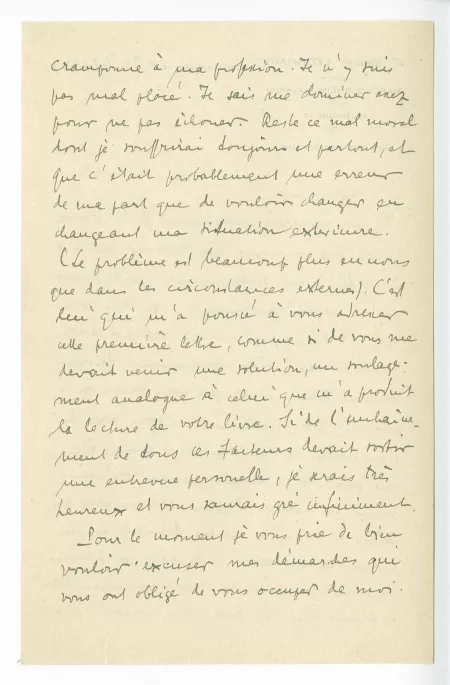 cramponne à ma profession. Je n'y suis
pas mal placé. Je sais me dominer assez
pour ne pas échouer. Reste ce mal moral
dont je souffrirai toujours et partout, et
que c'était probablement une erreur
de ma part que de vouloir changer en
changeant ma situation extérieure.
(Le problème est beaucoup plus en nous
que dans les circonstances externes). C'est
lui qui m'a poussé à vous adresser
cette première lettre, comme si de vous me
devait venir une solution, un soulage-
ment analogue à celui que m'a produit
la lecture de votre livre. Si de l'enchaîne-
ment de tous ces facteurs devait sortir
une entrevue personnelle, je serais très
heureux et vous saurais gré infiniment.
Pour le moment je vous prie de bien
vouloir excuser mes démarches qui
vous ont obligé de vous occuper de moi.